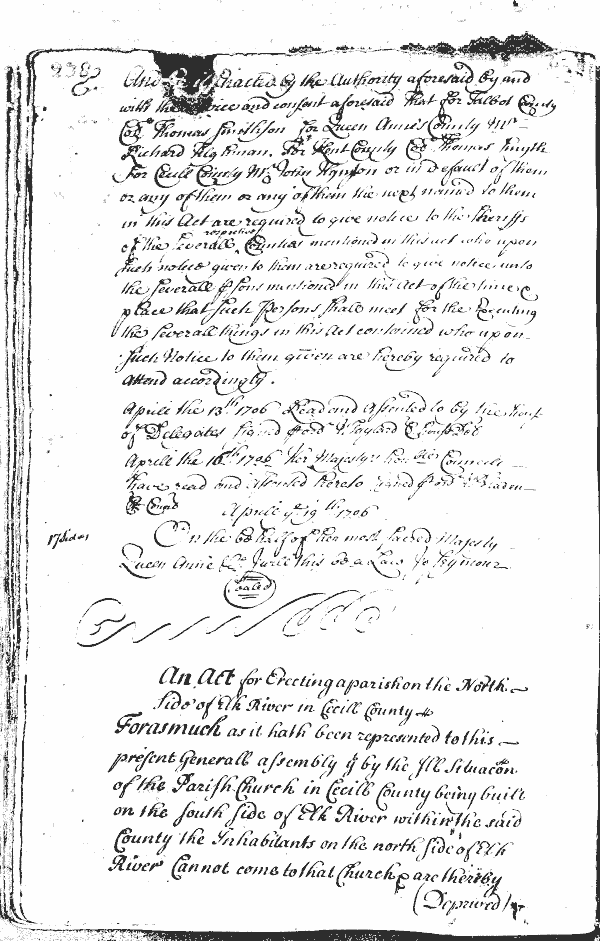 And be it Enacted by the Authority aforesaid by and
with the advice and consent aforesaid That for Talbot County
Coll.º Thomas Smithson for Queen Anne's County Mr
Richard Tilghman. For Kent County Coll Thomas Smyth
For Cecill County Mr John Hynson or in Default of them
or any of them or any of them the next named to them
in this Act are required to give notice to the Sheriffs
of the Severall respective Counties mentioned in this act who upon
Such notice given to them are required to give notice unto
the Severall Psons mentioned in this Act of the time &
place that Such Persons shall meet for the Executing
the Severall things in this Act contained who upon
Such Notice to them given are hereby required to
attend accordingly.
Aprill the 13.th 1706 Read and Assented to by the House
of Delegates Signed p ord. W Taylard Cl house Del
Aprill the 16th 1706 her Majestys honble Councill
have read and assented hereto signed p ord W Bladen
Cl Concil
Aprill ye 19th 1706
17 Sides
On the behalf of her most Sacred Majesty
Queen Anne &c. I will this be a Law Jo Seymour
Sealed
An Act for Erecting a parish on the North
Side of Elk River in Cecill County
Forasmuch as it hath been represented to this
present Generall assembly yt by the Ill Situacon
of the Parish Church in Cecill County being built
on the South Side of Elk River within the said
County the Inhabitants on the north Side of Elk
River Cannot come to that Church & are thereby
(Deprived